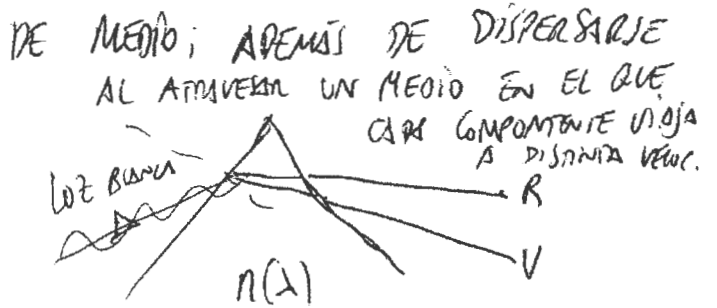 DE MEDIO; ADEMÁS DE DISPERSARSE
AL ATRAVESAR UN MEDIO EN EL QUE
CADA COMPONENTE VIAJA
A DISTINTA VELOC.
LUZ BLANCA
R
V
n(λ)